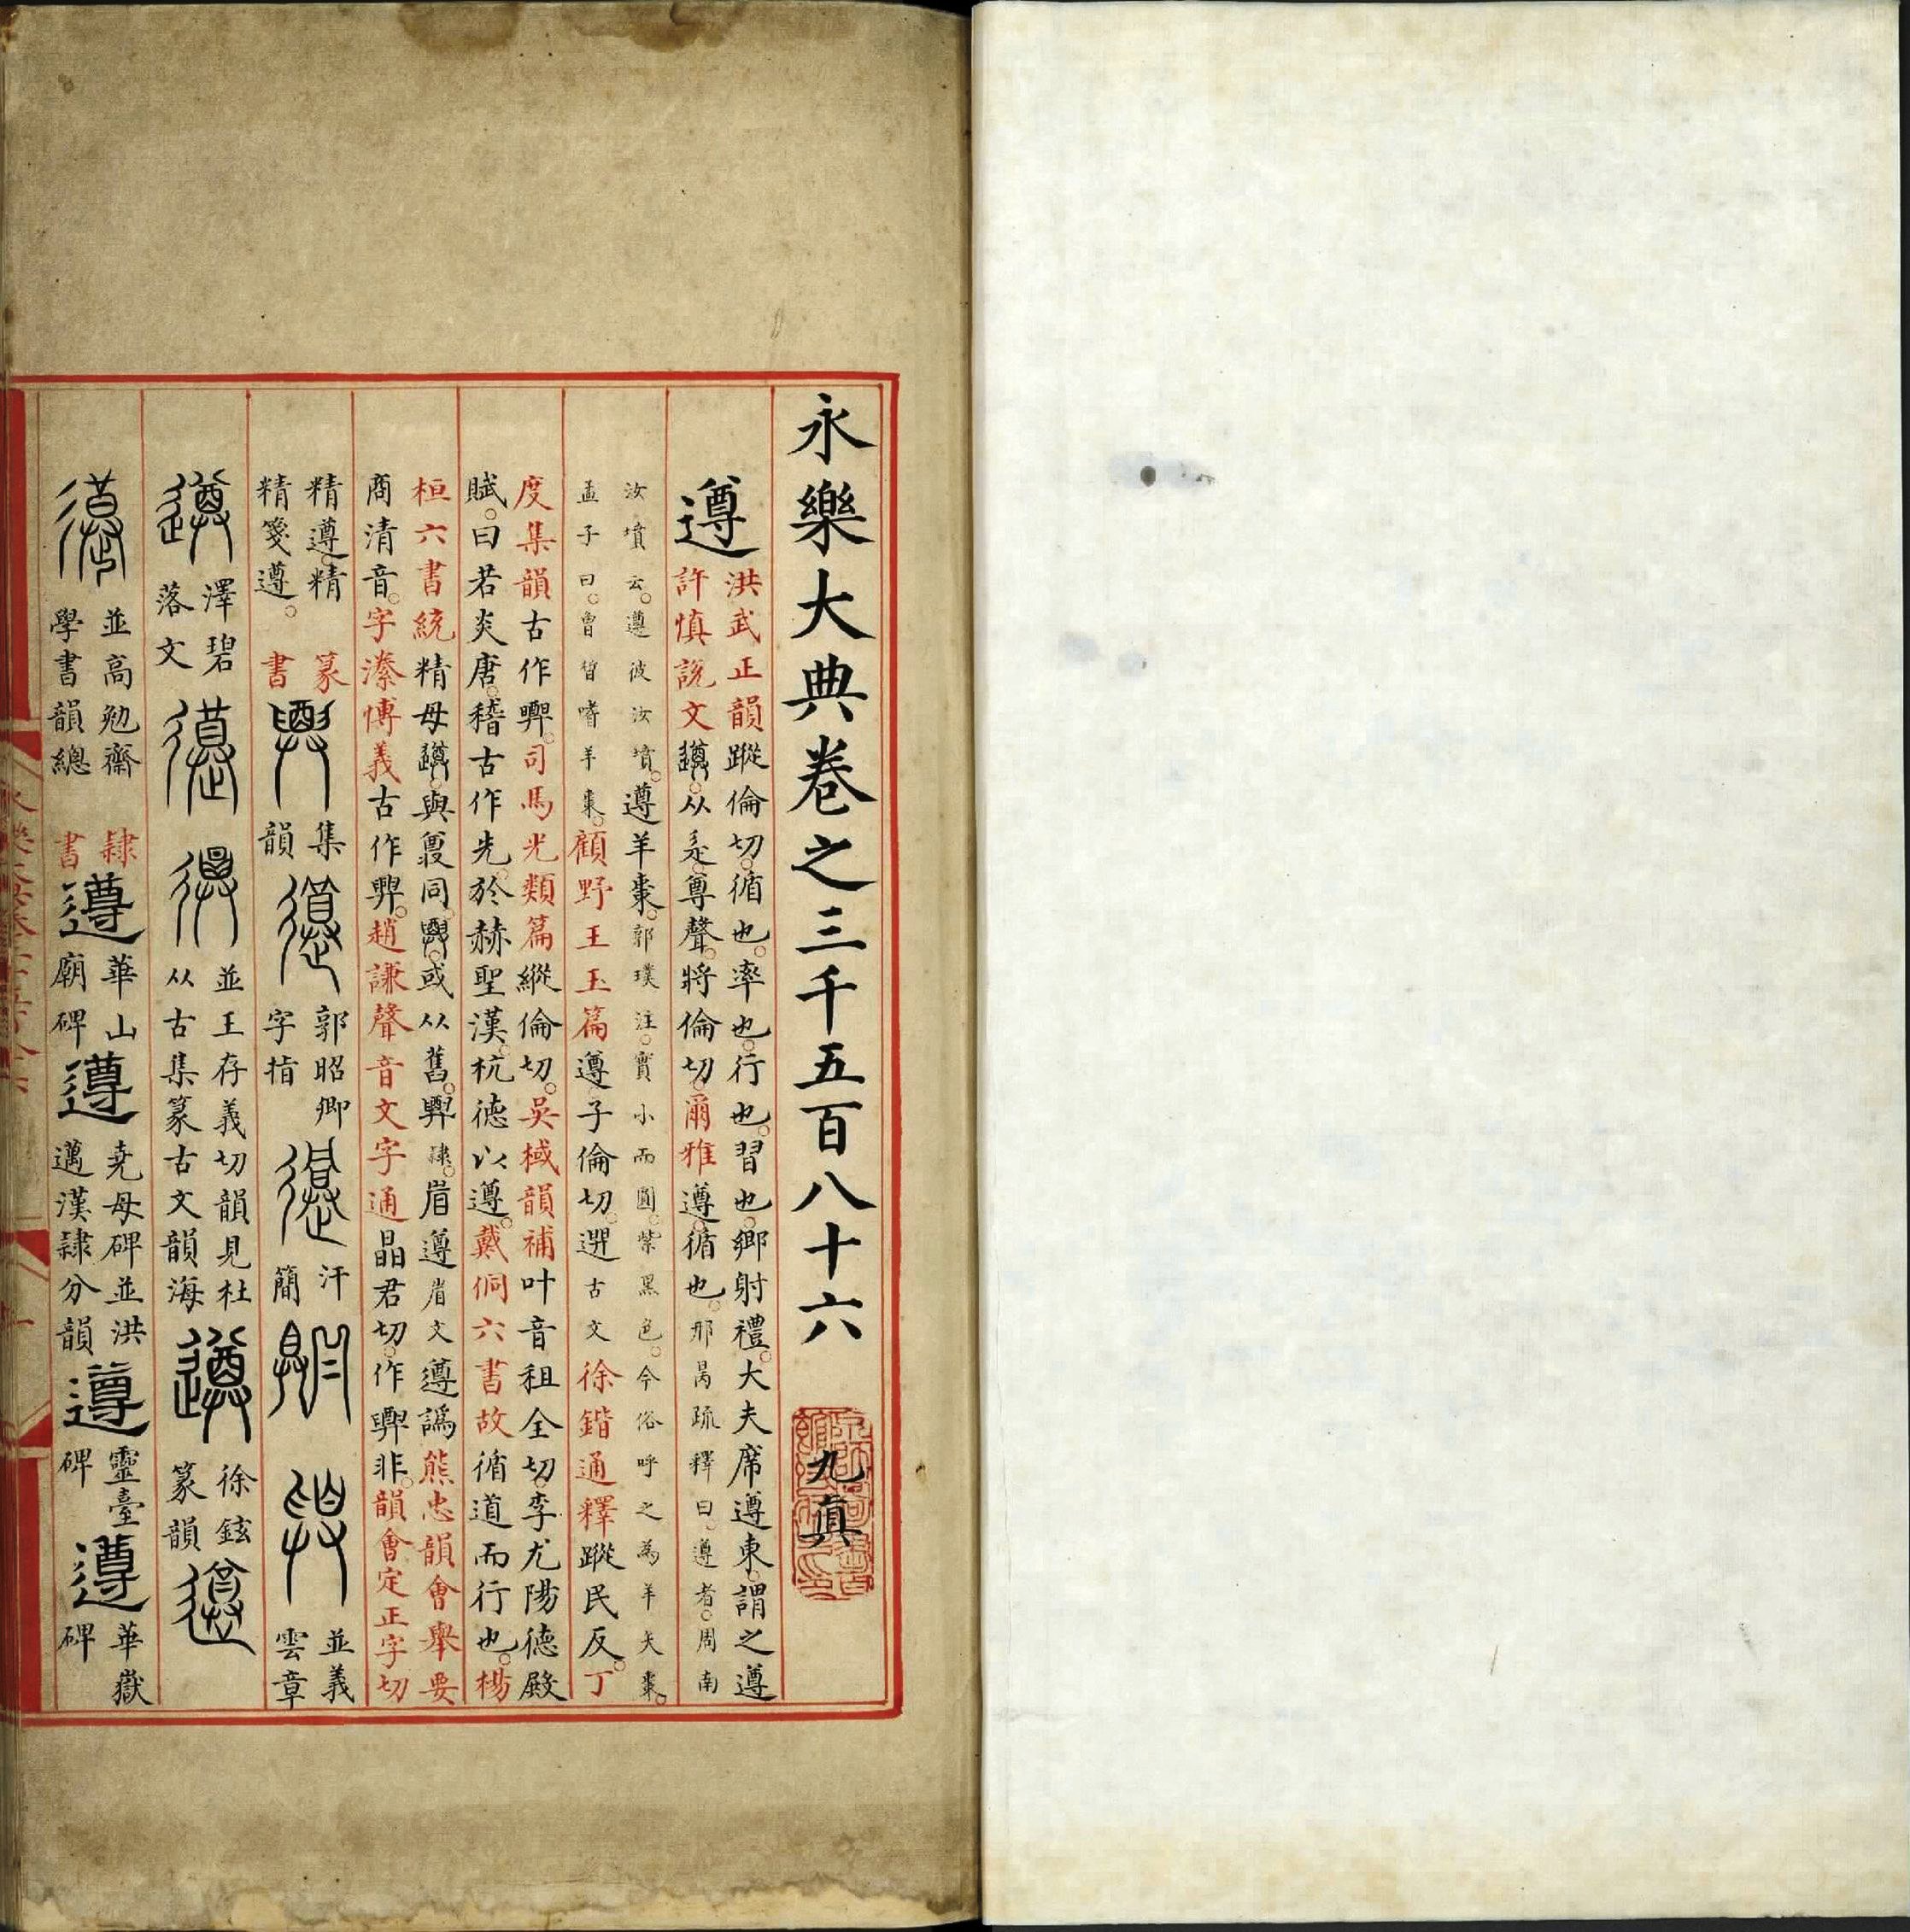 永樂大典卷之三千五百八十六 九真
遵
洪武正韻蹤倫切循也率也行也習也鄉射禮大夫席遵東謂之遵
許慎說文从辵尊聲將倫切爾雅遵循也邢昺疏釋曰遵者周南
汝墳云遵彼汝墳遵羊棗郭璞注實小而圓紫黑色今俗呼之為羊矢棗
孟子曰曾皙嗜羊棗顧野王玉篇遵子倫切選古文徐鍇通釋蹤民反丁
度集韻古作司馬光類篇縱倫切吳棫韻補叶音租全切李尤陽德殿
賦曰若炎唐稽古作先於赫聖漢杭德以遵戴侗六書故循道而行也楊
桓六書統精母與同或从舊隸眉遵眉文遵譌熊忠韻會舉要
商清音字潫博義古作趙謙聲音文字通晶君切作非韻會定正字切
精遵精
精箋遵
篆書
集韻
郭昭卿字指
汗簡
並義雲章
澤碧落文
並王存義切韻見杜从古集篆古文韻海
徐鉉篆韻
並高勉齋學書韻總
隸書
遵
華山廟碑
遵
堯母碑並洪邁漢隸分韻
遵
靈臺碑
遵
華嶽碑